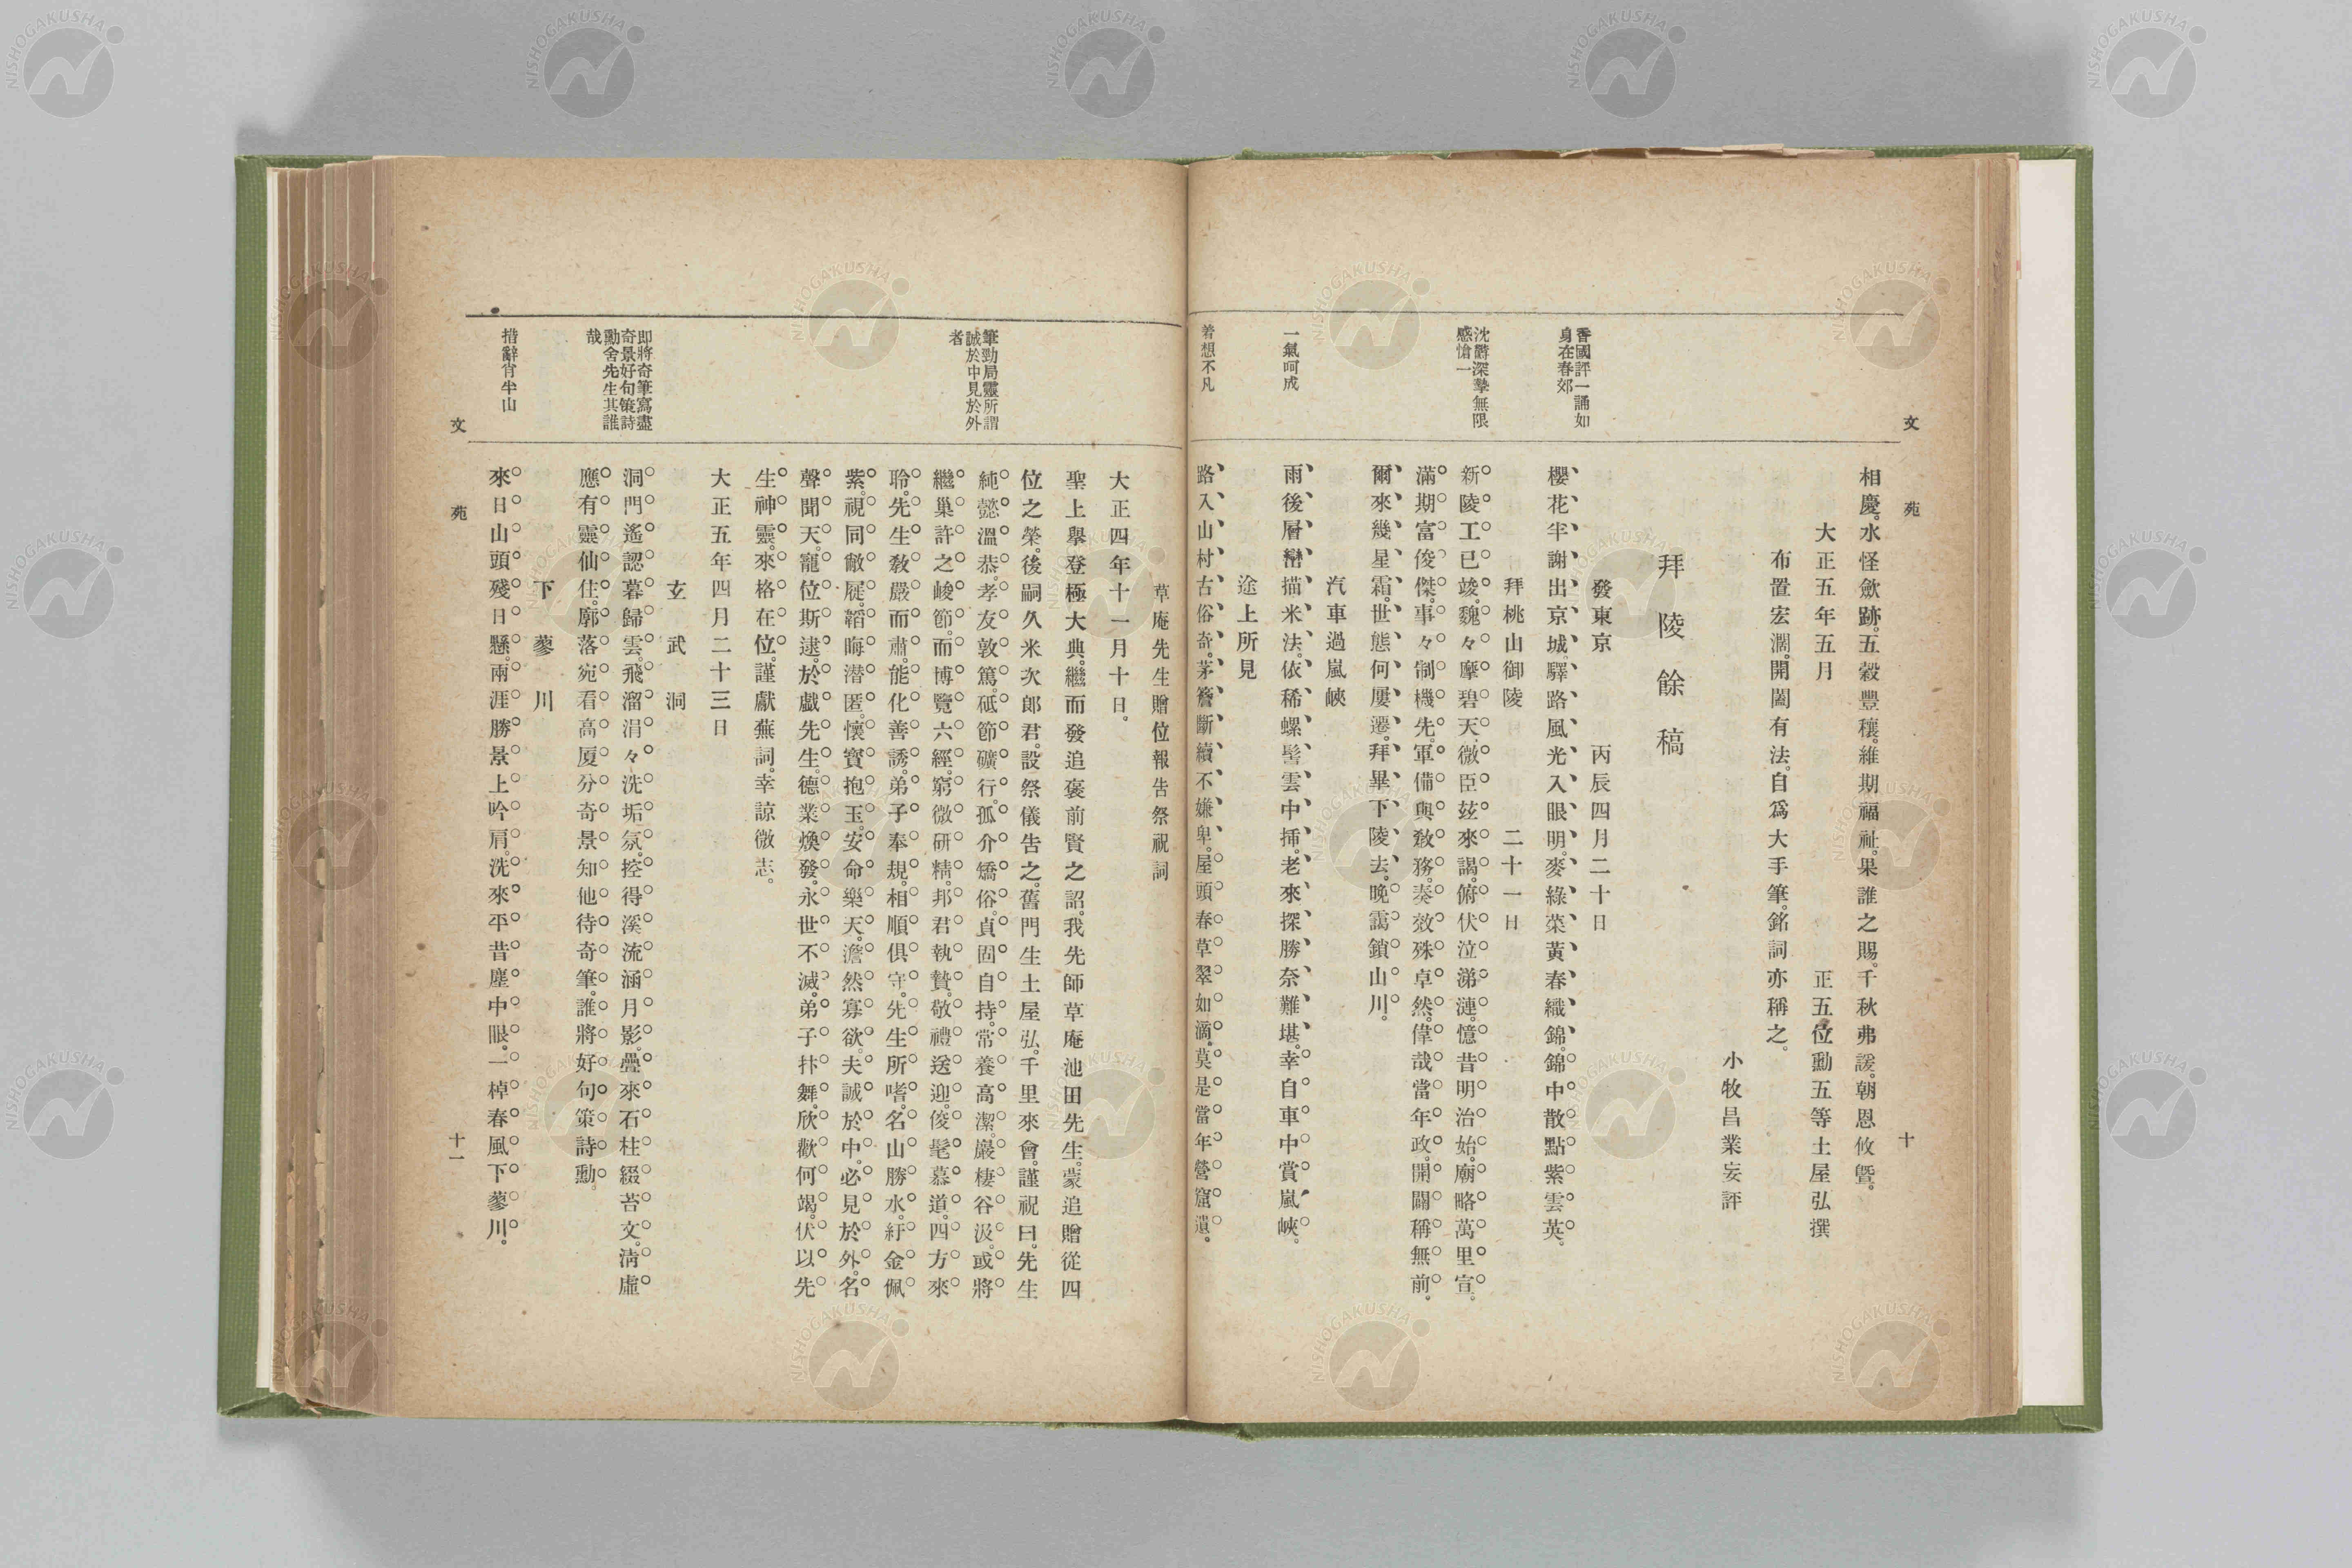 文苑
十
相慶。水怪歛跡。五穀豐穰。維期福祉。果誰之賜。千秋弗諼。朝恩攸曁。
大正五年五月　正五位勳五等土屋弘撰
布置宏濶。開闔有法。自爲大手筆。銘詞亦稱之。
小牧昌業妄評
拜陵餘稿
發東京　丙辰四月二十日
香國評一誦如
身在春郊
櫻花半謝出京城。驛路風光入眼明。麥綠菜黃春織錦。錦中散點紫雲英。
拜桃山御陵　二十一日
沈欝深摯無限
感愴一
新陵工已竣。魏々摩碧天。微臣玆來謁。俯伏泣涕漣。憶昔明治始。廟略萬里宣。
滿期富俊傑。事々制機先。軍備與敎務。奏效殊卓然。偉哉當年政。開闢稱無前。
爾來幾星霜。世態何屢遷。拜畢下陵去。晩靄鎖山川。
汽車過嵐峽
一氣呵成
雨後層巒描米法。依稀螺髻雲中揷。老來探勝奈難堪。幸自車中賞嵐峽。
途上所見
著想不凡
路入山村古俗奇。茅簷斷續不嫌卑。屋頭春草翠如滴。莫是當年營窟遺。
草庵先生贈位報告祭祝詞
大正四年十一月十日。
聖上擧登極大典。繼而發追褒前賢之詔。我先師草庵池田先生。蒙追贈從四
位之榮。後嗣久米次郎君。設祭儀告之。舊門生土屋弘。千里來會。謹祝曰。先生
筆勁局靈所謂
誠於中見於外
者
純懿溫恭。孝友敦篤。砥節礪行。孤介矯俗。貞固自持。常養高潔。巖棲谷汲。或將
繼巢許之峻節。而博覽六經。窮微研精。邦君執贄。敬禮送迎。俊髦慕道。四方來
聆。先生敎嚴而肅。能化善誘。弟子奉規。相順俱守。先生所嗜。名山勝水。紆金佩
紫。視同敝屣。韜晦潛匿。懷寶抱玉。安命樂天。澹然寡欲。夫誠於中。必見於外。名
聲聞天。寵位斯逮。於戲先生。德業煥發。永世不滅。弟子抃舞。欣歡何竭。伏以先
生神靈。來格在位。謹獻蕪詞。幸諒微志。
大正五年四月二十三日
玄武洞
即將奇筆寫盡
奇景好句策詩
勳舍先生其誰
哉
洞門遙認暮歸雲。飛溜涓々洗垢氛。控得溪流涵月影。疊來石柱綴苔文。淸虛
應有靈仙住。廓落宛看高厦分。奇景知他待奇筆。誰將好句策詩勳。
下蓼川
措辭肖半山
來日山頭殘日懸。兩涯勝景上吟肩。洗來平昔塵中眼。一棹春風下蓼川。
文苑
十一
NISHOGAKUSHA